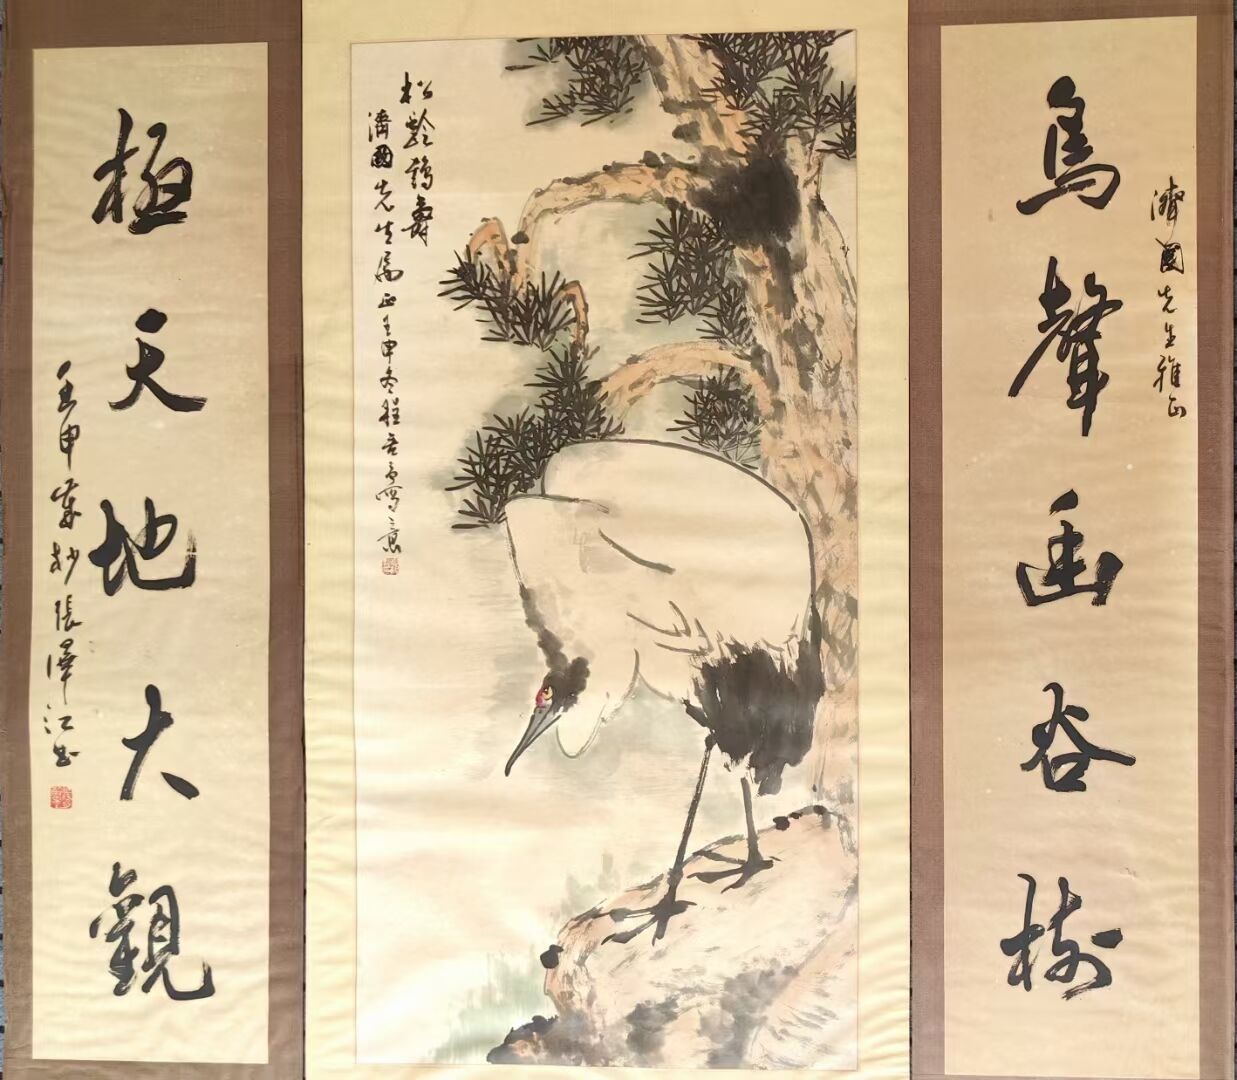 濟國先生雅正
鳥聲幽谷樹
松齡鶴壽
濟國先生屬正壬申冬程寫意
極天地大觀
壬申歲杪張澤江書